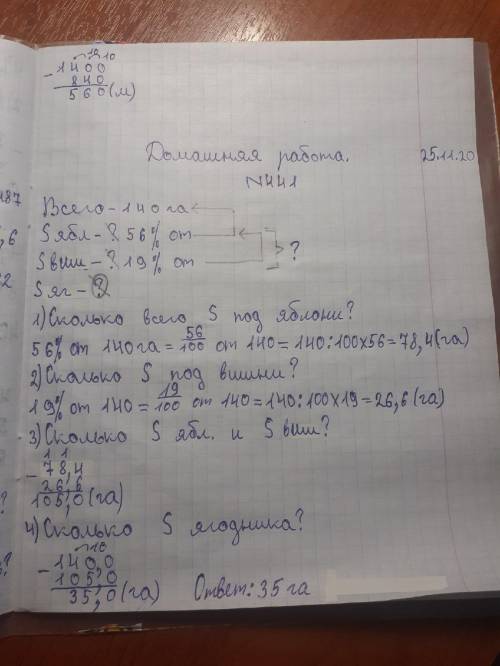 - 1400
840
560(м)
Домашняя работа. 25.11.20
N441
Всего-140га
S ябл-? 56% от
S виш-? 19% от ?
S яг-?
1)Сколько всего S под яблони?
56% от 140га= 56/100 от 140=140:100x56=78,4(га)
2)Сколько S под вишни?
19% от 140= 19/100 от 140=140:100x19=26,6(га)
3)Сколько S ябл. и S виш?
1 1
- 78,4
26,6
105,0(га)
4)Сколько S ягодника?
10
- 140,0
105,0
35,0(га) Ответ: 35 га
187
,6